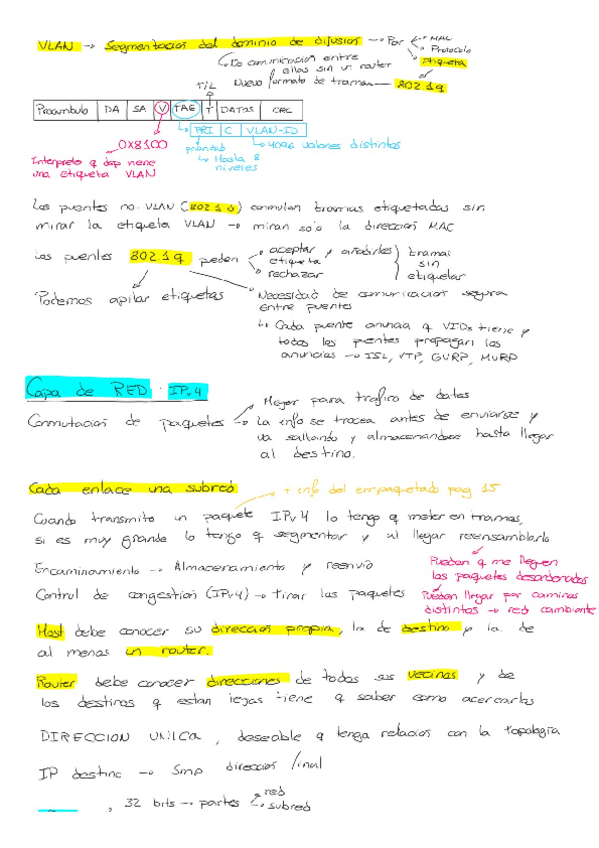 VLAN → Segmentacion del dominio de difusion → Por
MAC
Protocolo
Etiqueta
No comunicacion entre
ellas sin un router
Nuevo formato de tramas — 802.1q
T/L
Preambulo | DA | SA | V | TAG | T | DATOS | CRC
PRI | C | VLAN-ID
0x8100
prioridad
4096 valores distintos
Hasta 8
niveles
Interpreto q dsp viene
una etiqueta VLAN
Los puentes no-VLAN (802.1D) conmutan tramas etiquetadas sin
mirar la etiqueta VLAN → miran solo la direccion MAC
Los puentes 802.1q pueden
aceptar y añadirles
etiqueta
rechazar
tramas
sin
etiquetar
Podemos apilar etiquetas
Necesidad de comunicacion segura
entre puentes
Cada puente anuncia q VIDs tiene y
todos los puentes propagan los
anuncios → ISL, VTP, GVRP, MVRP
Capa de RED · IPv4
Conmutacion de paquetes
Mejor para trafico de datos
La info se trocea antes de enviarse y
va saltando y almacenandose hasta llegar
al destino.
Cada enlace una subred
+ info del empaquetado pag 15
Cuando transmito un paquete IPv4 lo tengo q meter en tramas,
si es muy grande lo tengo q segmentar y al llegar reensamblarlo
Encaminamiento → Almacenamiento y reenvío
Pueden q me lleguen
los paquetes desordenados
Control de congestion (IPv4) → tirar los paquetes
Pueden llegar por caminos
distintos → red cambiante
Host debe conocer su direccion propia, la de destino y la de
al menos un router.
Router debe conocer direcciones de todos sus vecinos y de
los destinos q estan lejos tiene q saber como acercarlos
DIRECCION UNICA, deseable q tenga relacion con la topología
IP destino → Smp direccion final
, 32 bits → partes
red
subred